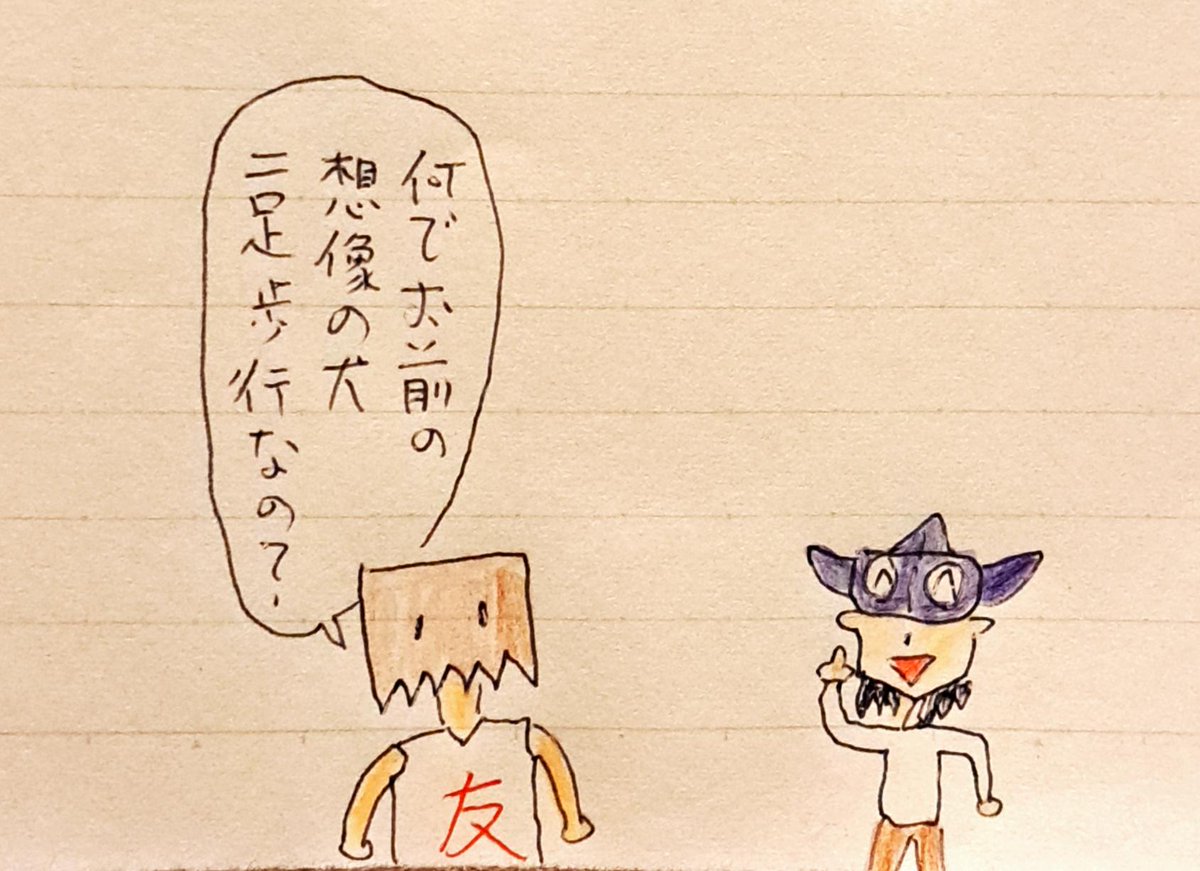 何でお前の
想像の犬
二足歩行なので
友